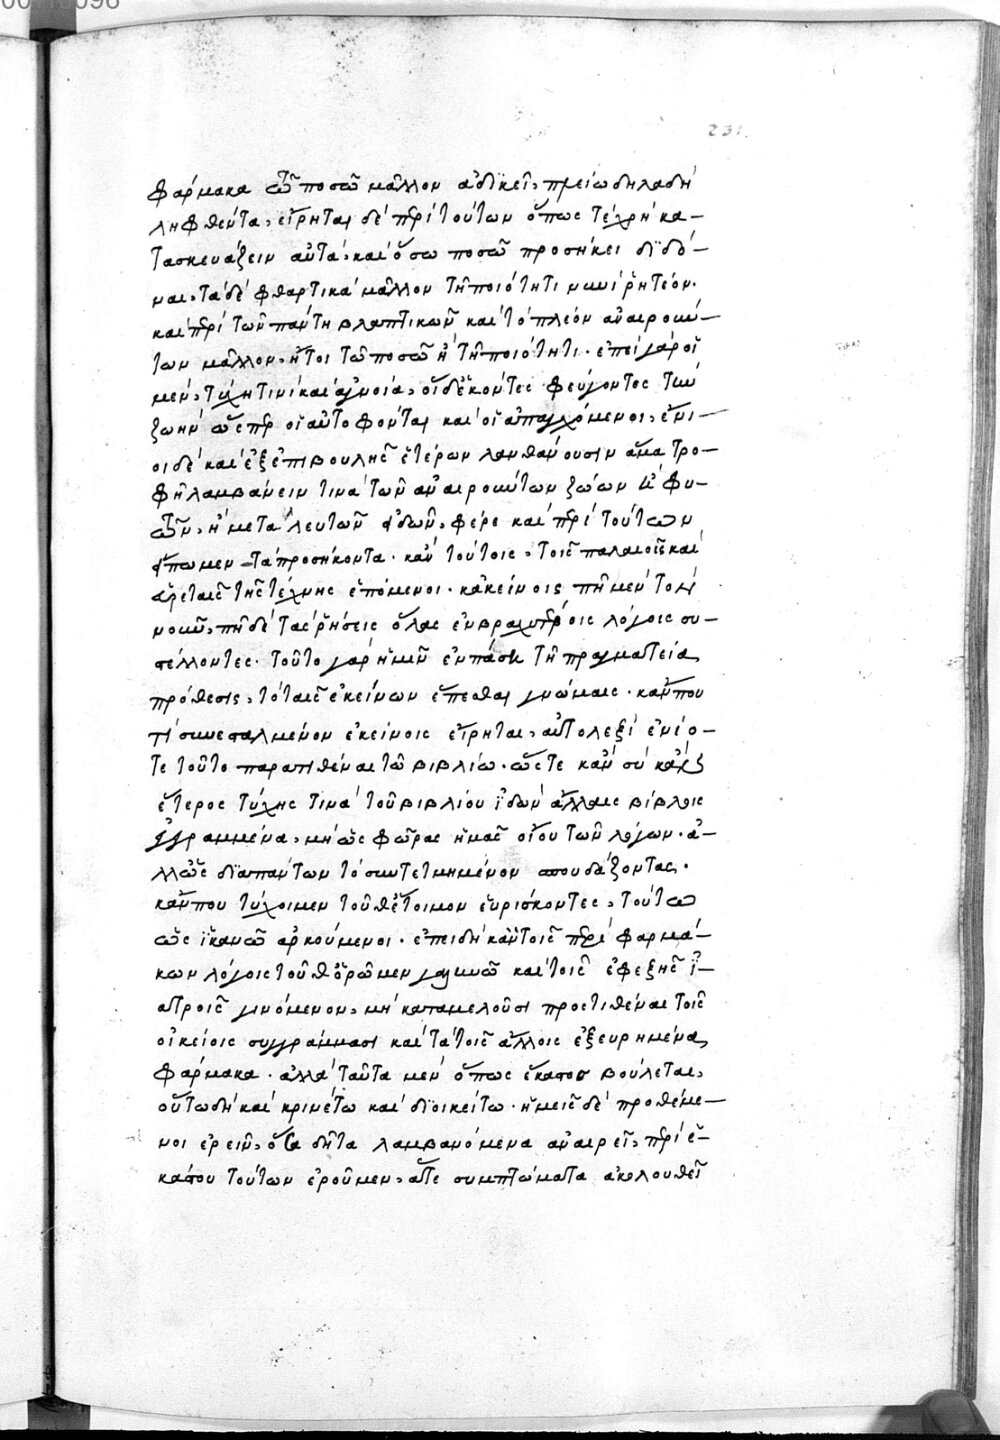 231
φάρμακα ὧν τῶ ποσῶ μᾶλλον ἀδικεῖ, πλείω δηλαδὴ
ληφθέντα, εἴρηται δὲ περὶ τούτων ὅπως τε χρὴ κα-
τασκευάζειν αὐτὰ, καὶ ὅσω ποσῶ προσήκει διδό-
ναι, τὰ δὲ φθαρτικὰ μᾶλλον τῆ ποιότητι νυνὶ ῥητέον.
καὶ περὶ τῶν πάντη βλαπτικῶν καὶ τὸ πλέον ἀναιρούν-
των μᾶλλον, ἤτοι τῶ ποσῶ ἢ τῆ ποιότητι. ἐπεὶ γὰρ οἳ
μὲν, τύχη τινὶ καὶ ἀγνοία, οἳ δ' ἑκόντες φεύγοντες τὴν
ζωὴν ὥσπερ οἱ αὐτοφονται καὶ οἱ ἀπαγχόμενοι, ἔνι-
οι δὲ καὶ ἐξ ἐπιβουλῆς ἑτέρων λανθάνουσιν ἅμα τρο-
φῆ λαμβάνειν τινὰ τῶν ἀναιρούντων ζώων ἢ φυ-
τῶν, ἢ μεταλλευτῶν εἰδῶν, φέρε καὶ περὶ τούτων
εἴπωμεν τὰ προσήκοντα. κἀν τούτοις, τοῖς παλαιοῖς καὶ
ἀρίστοις τῆς τέχνης ἑπόμενοι. κἀκείνοις πῆ μὲν τὸν
νοῦν, πῆ δὲ τὰς ῥήσεις ὅλας ἐν βραχυτέροις λόγοις συ-
στέλλοντες. τοῦτο γὰρ ἡμῖν ἐν πάση τῆ πραγματεία
πρόθεσις, τὸ ταῖς ἐκείνων ἕπεσθαι γνώμαις. κἄν που
τί συνεσταλμένον ἐκείνοις εἴρηται, αὐτολεξὶ ἐνίο-
τε τοῦτο παρατιθέναι τῶ βιβλίω. ὥστε κἂν σὺ κἂν
ἕτερος τύχης τινὰ τοῦ βιβλίου ἰδὼν ἄλλαις βίβλοις
ἐγγραμμένα, μὴ ὡς φῶρας ἡμᾶς οἴου τῶν λόγων. ἀ-
λλ' ὡς διαπάντων τὸ συντετμημένον σπουδάζοντας.
κἄν που τύχοιμεν τοῦθ' ἕτοιμον εὑρίσκοντες, τούτω
ὡς ἱκανῶ ἀρκούμενοι. ἐπειδὴ κἂν τοῖς περὶ φαρμά-
κων λόγοις τοῦθ' ὁρῶμεν γαληνῶ καὶ τοῖς ἐφεξῆς ἰ-
ατροῖς γινόμενον, μὴ καταμελοῦσι προστιθέναι τοῖς
οἰκείοις συγγράμμασι καὶ τὰ τοῖς ἄλλοις ἐξευρημένα
φάρμακα. ἀλλὰ ταῦτα μὲν ὅπως ἕκαστος βούλεται,
οὕτω δὴ καὶ κρινέτω καὶ διοικείτω. ἡμεῖς δὲ προθέμε-
νοι ἐρεῖν, ὅσα δῆτα λαμβανόμενα ἀναιρεῖ, περὶ ἑ-
κάστου τούτων ἐροῦμεν, ἅτε συμπτώματα ἀκολουθεῖ